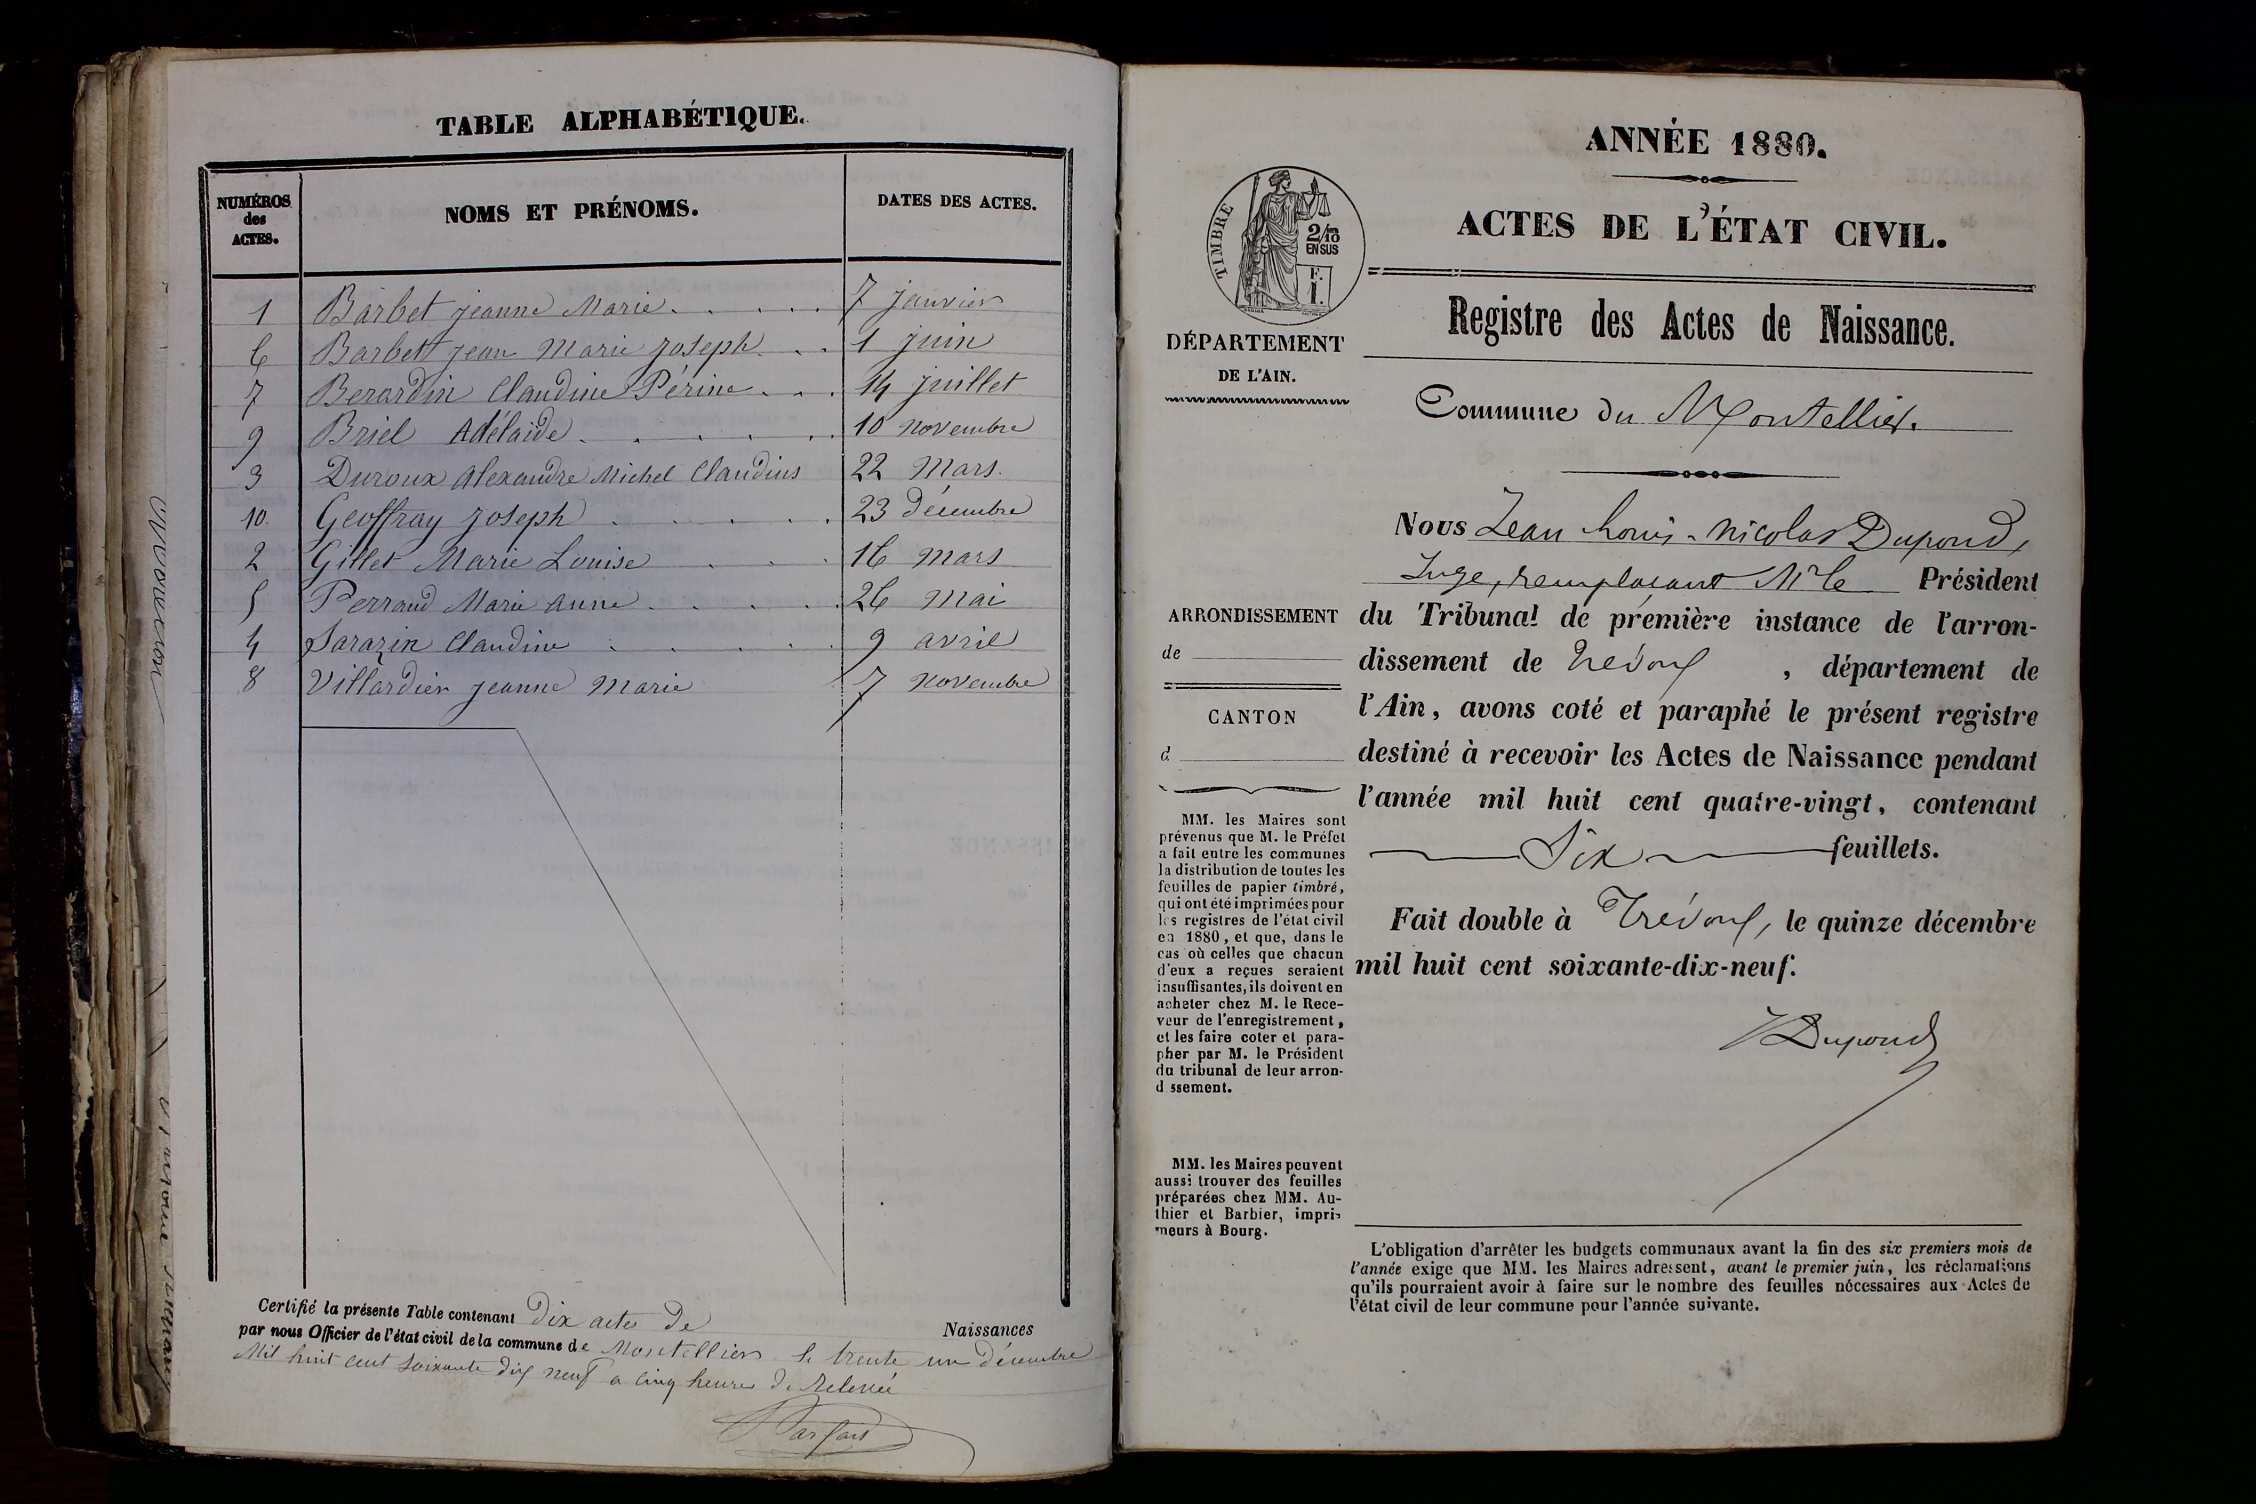 TABLE ALPHABÉTIQUE.
NUMÉROS des ACTES. NOMS ET PRÉNOMS. DATES DES ACTES.
1 Barbet jeanne Marie 7 janvier
6 Barbet jean Marie joseph 1 juin
7 Berardin Claudine Périne 14 juillet
9 Briel Adélaide 10 novembre
3 Duroux Alexandre Michel Claudius 22 Mars.
10. Geoffray joseph 23 décembre
2 Gillet Marie Louise 16 mars
5 Perraud Marie anne 26 mai
4 Sarazin Claudine 9 avril
8 Villardier jeanne Marie 7 novembre
Certifié la présente Table contenant Dix actes de Naissances
par nous Officier de l'état civil de la commune de Montellier le trente un Décembre
Mil huit cent soixante dix neuf a cinq heures de Relevée
ANNÉE 1880.
ACTES DE L'ÉTAT CIVIL.
TIMBRE
2/10
EN SUS
F.
1.
DÉPARTEMENT
DE L'AIN.
Registre des Actes de Naissance.
Commune du Montellier.
Nous Jean Louis-Nicolas Dupond,
Juge, remplaçant Mr le Président
du Tribunal de première instance de l'arron-
dissement de Trévoux, département de
l'Ain, avons coté et paraphé le présent registre
destiné à recevoir les Actes de Naissance pendant
l'année mil huit cent quatre-vingt, contenant
Six feuillets.
Fait double à Trévoux, le quinze décembre
mil huit cent soixante-dix-neuf.
Dupond
ARRONDISSEMENT
de
CANTON
d
MM. les Maires sont
prévenus que M. le Préfet
a fait entre les communes
la distribution de toutes les
feuilles de papier timbré,
qui ont été imprimées pour
les registres de l'état civil
en 1880, et que, dans le
cas où celles que chacun
d'eux a reçues seraient
insuffisantes, ils doivent en
acheter chez M. le Rece-
veur de l'enregistrement,
et les faire coter et para-
pher par M. le Président
du tribunal de leur arron-
d ssement.
MM. les Maires peuvent
aussi trouver des feuilles
préparées chez MM. Au-
thier et Barbier, impri-
meurs à Bourg.
L'obligation d'arrêter les budgets communaux avant la fin des six premiers mois de
l'année exige que MM. les Maires adressent, avant le premier juin, les réclamations
qu'ils pourraient avoir à faire sur le nombre des feuilles nécessaires aux Actes de
l'état civil de leur commune pour l'année suivante.